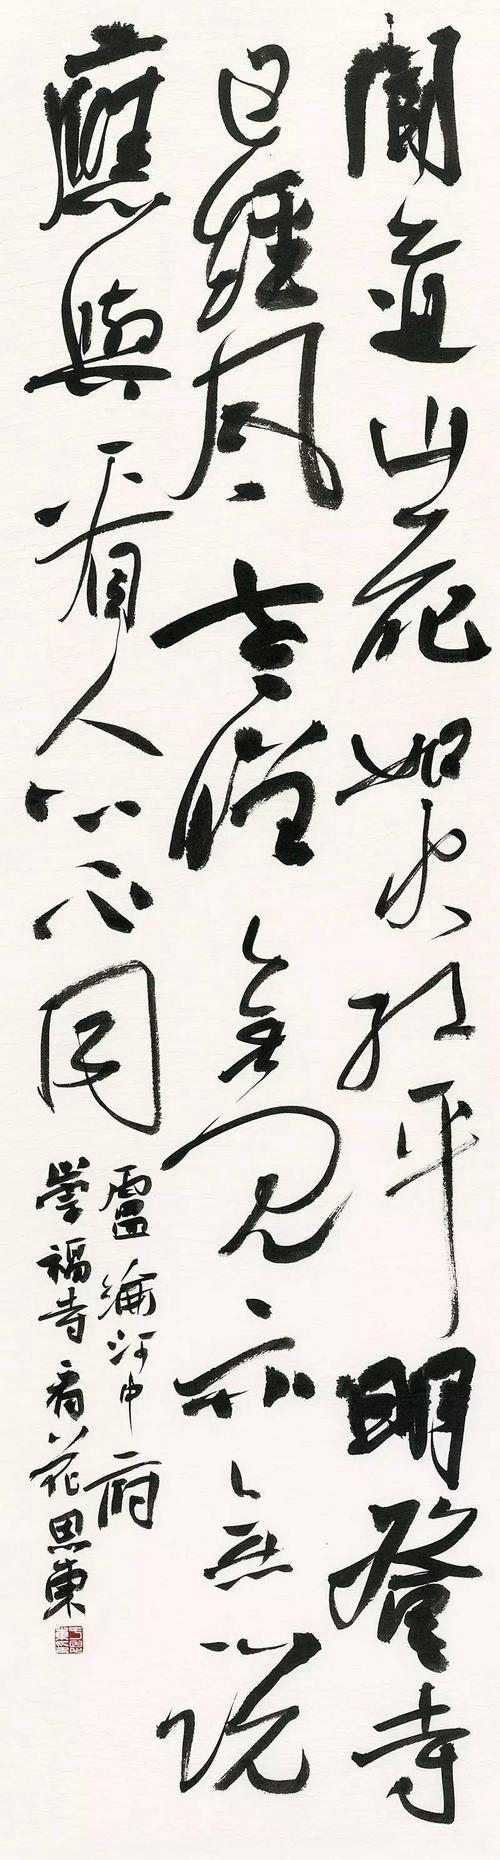 聞道山花如火紅平明登寺
已經風老僧無見亦無説
應與看人心不同
盧綸河中府
崇福寺看花思東